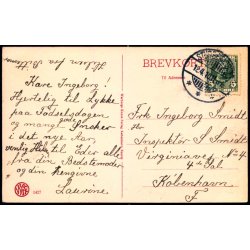 Hilsen fra os Alle
BREVKORT
Til Adressen
Kære Ingeborg!
Hjertelig til Lykke
paa Fødselsdagen
og mange gode Ønsker
i det nye Aar.
venlig Hilsen til Eder alle
fra din Bedstemoder
og din hengivne
Laurine.
Frk Ingeborg Smidt
Inspektør S Smidt
Virginiavej No 4
4de Sal
København
F